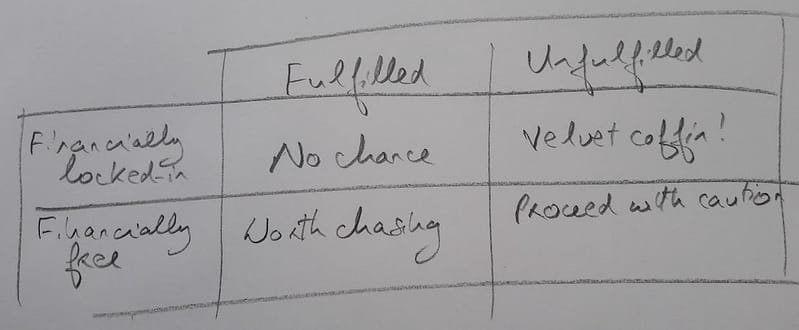 Fulfilled Unfulfilled
Financially
locked-in
No chance
Velvet coffin!
Financially
free
Worth chasing
Proceed with caution